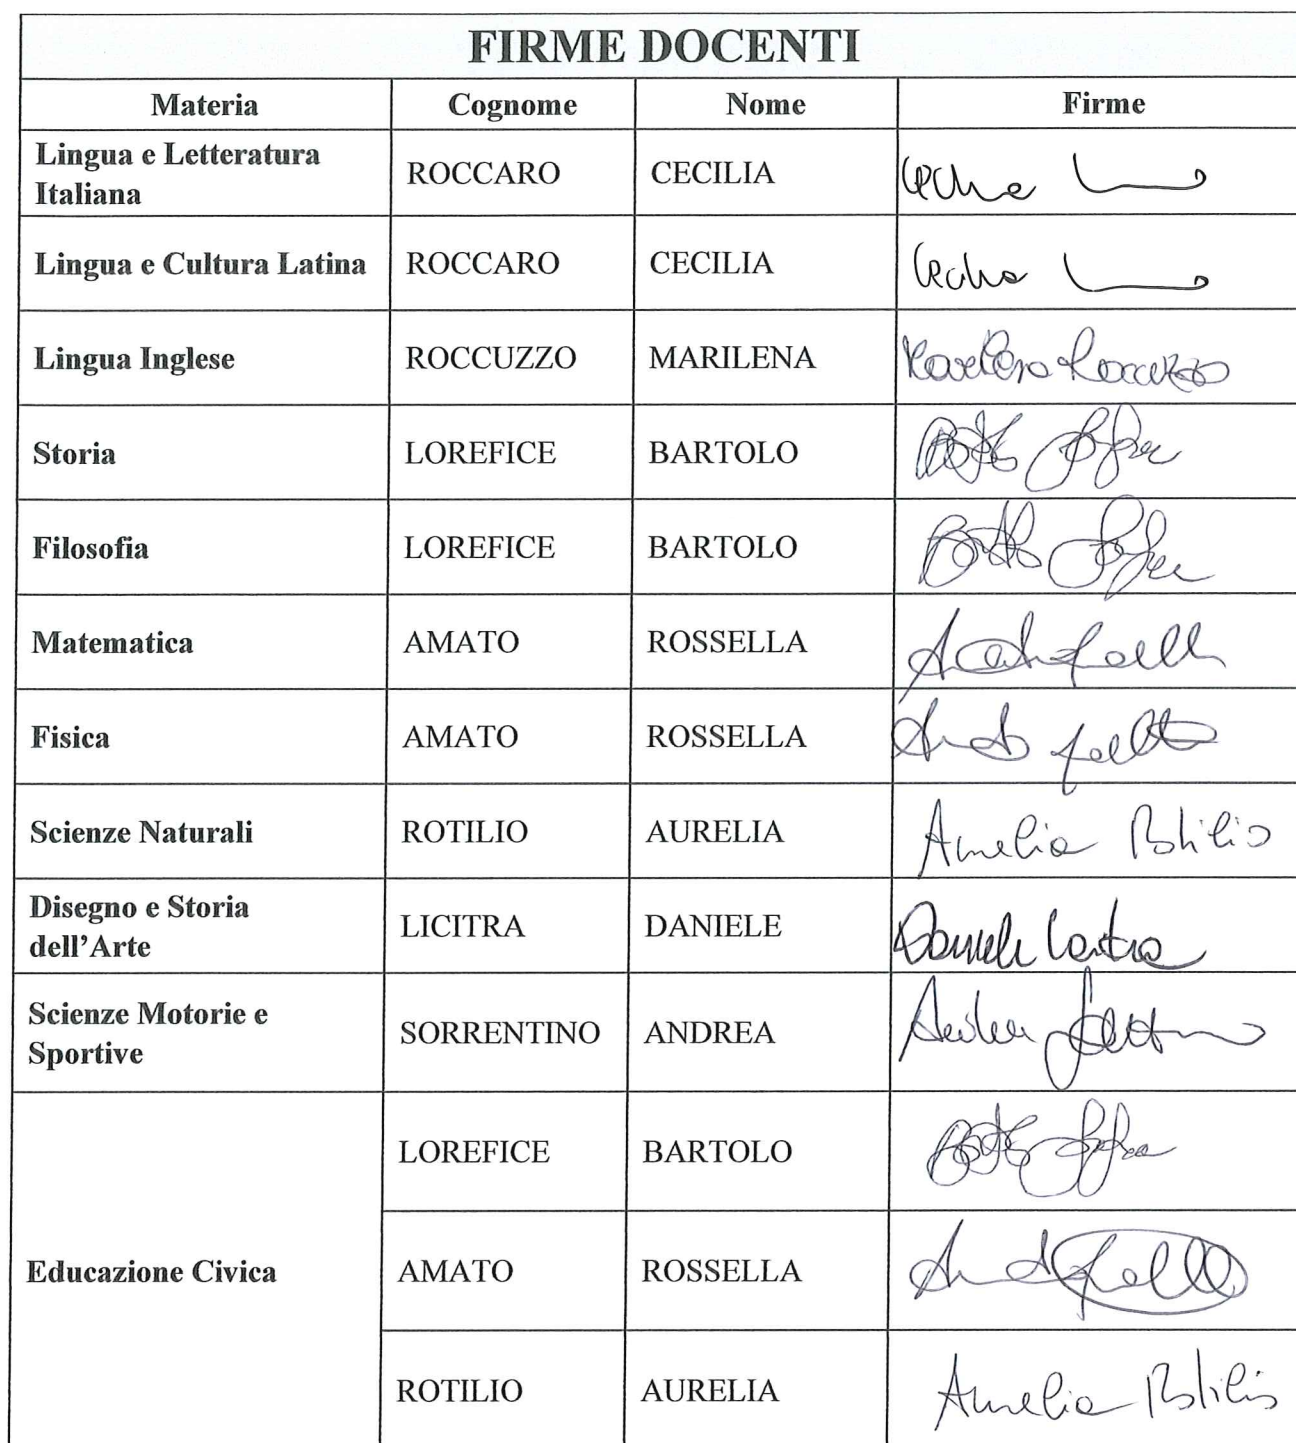 FIRME DOCENTI
Materia Cognome Nome Firme
Lingua e Letteratura
Italiana
ROCCARO CECILIA
Lingua e Cultura Latina ROCCARO CECILIA
Lingua Inglese ROCCUZZO MARILENA Marilena Roccuzzo
Storia LOREFICE BARTOLO
Filosofia LOREFICE BARTOLO
Matematica AMATO ROSSELLA
Fisica AMATO ROSSELLA
Scienze Naturali ROTILIO AURELIA Aurelia Rotilio
Disegno e Storia
dell’Arte
LICITRA DANIELE Daniele Licitra
Scienze Motorie e
Sportive
SORRENTINO ANDREA
Educazione Civica
LOREFICE BARTOLO
AMATO ROSSELLA
ROTILIO AURELIA Aurelia Rotilio